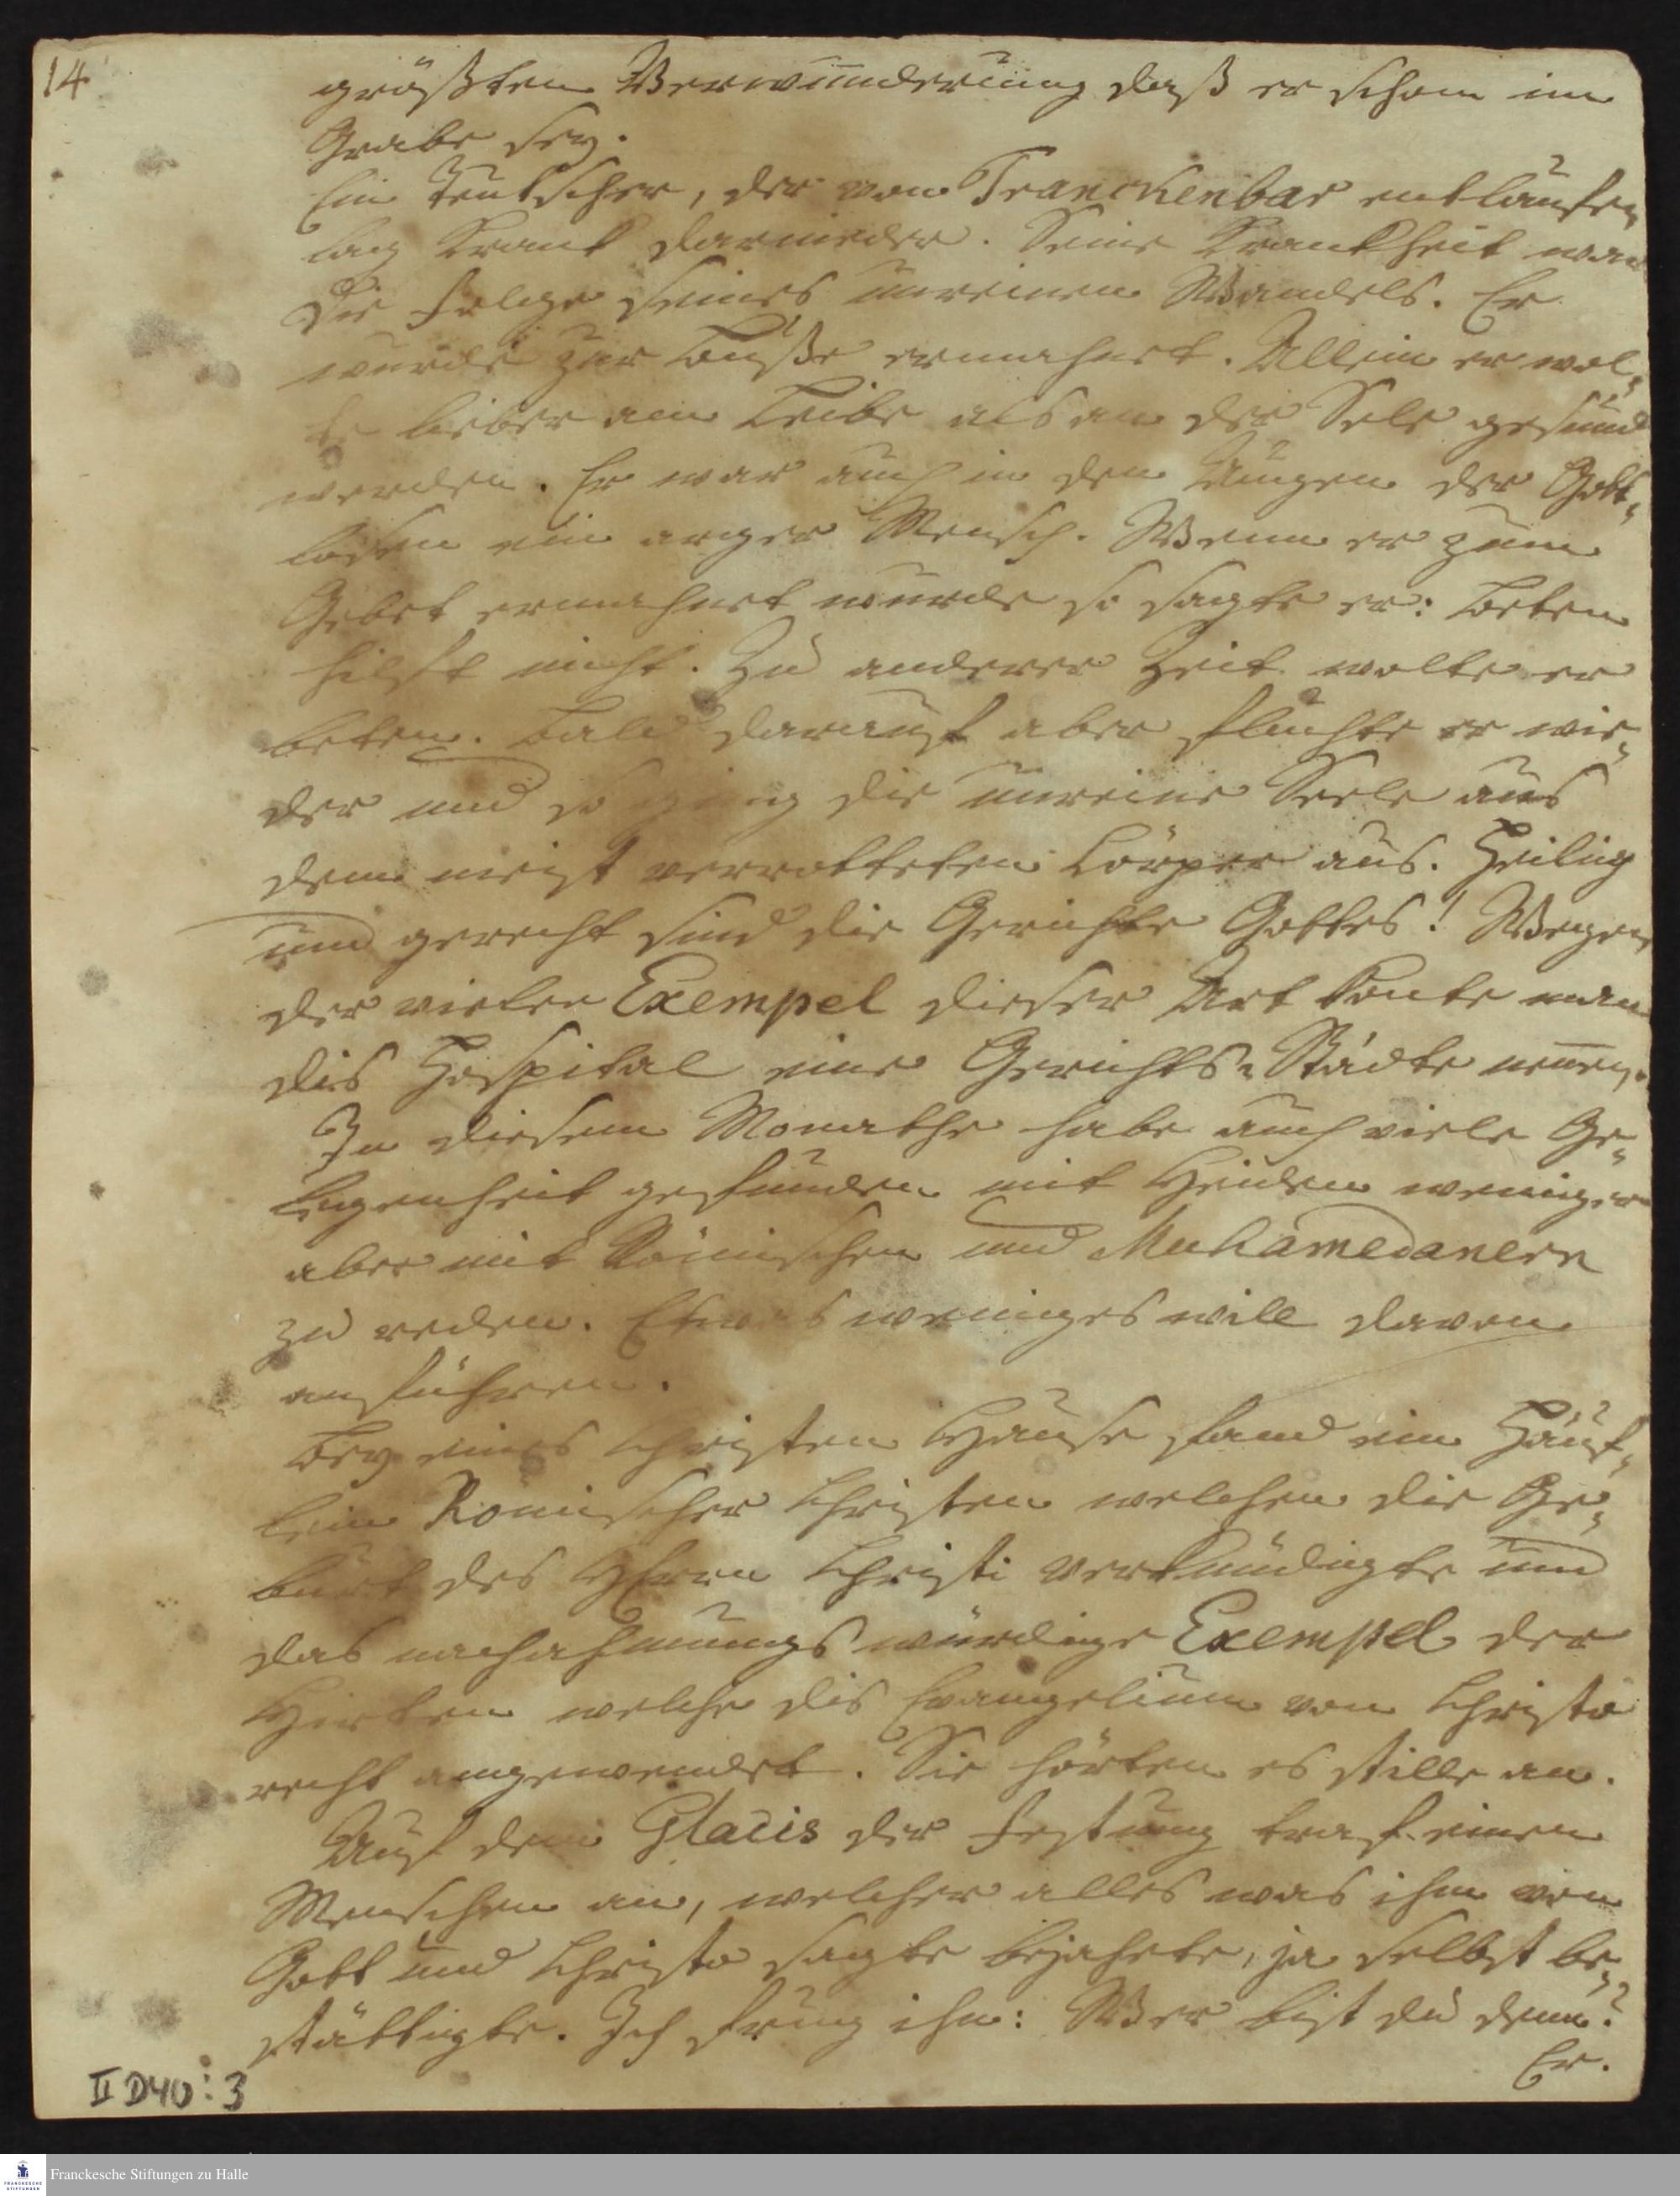 14
größten Verwunderung daß er schon im
Grabe sey.
Ein Teutscher, der von Tranckenbar entlaufen,
lag kranck darnieder. Seine Kranckheit war
die Folge seines unreinen Wandels. Er
wurde zur Buße ermahnet. Allein er wol-
te lieber am Leibe als an der Sele gesund
werden. Er war auch in den Augen der Gott-
losen ein arger Mensch. Wenn er zum
Gebet ermahnet wurde so sagte er: Beten
hilft nicht. Zu anderer Zeit wolte er
beten. Bald darauf aber fluchte er wie-
der und so ging die unreine Seele aus
dem meist verrotteten Cörper aus. Heilig
und gerecht sind die Gerichte Gottes! Wegen
der vielen Exempel dieser Art konte man
dis Hospital eine Gerichts-Städte nennen.
In diesem Monathe habe auch viele Ge-
legenheit gefunden mit Heiden weniger
aber mit Römischen und Muhamedanern
zu reden. Etwas weniges will davon
anführen.
Bey eines Christen Hause fand ein Häuf-
lein Römischer Christen welchen die Ge-
burt des HErrn Christi verkündigte und
das nachahmungs würdige Exempel der
Hirten welche dis Evangelium von Christo
recht angewendet. Sie hörten es stille an.
Auf dem Glacis der Festung traf einen
Menschen an, welcher alles was ihm von
Gott und Christo sagte bejahete, ja selbst be-
stättigte. Ich frug ihn: Wer bist du denn?
Er.
II D40:3
Franckesche Stiftungen zu Halle
FRANCKESCHE
STIFTUNGEN